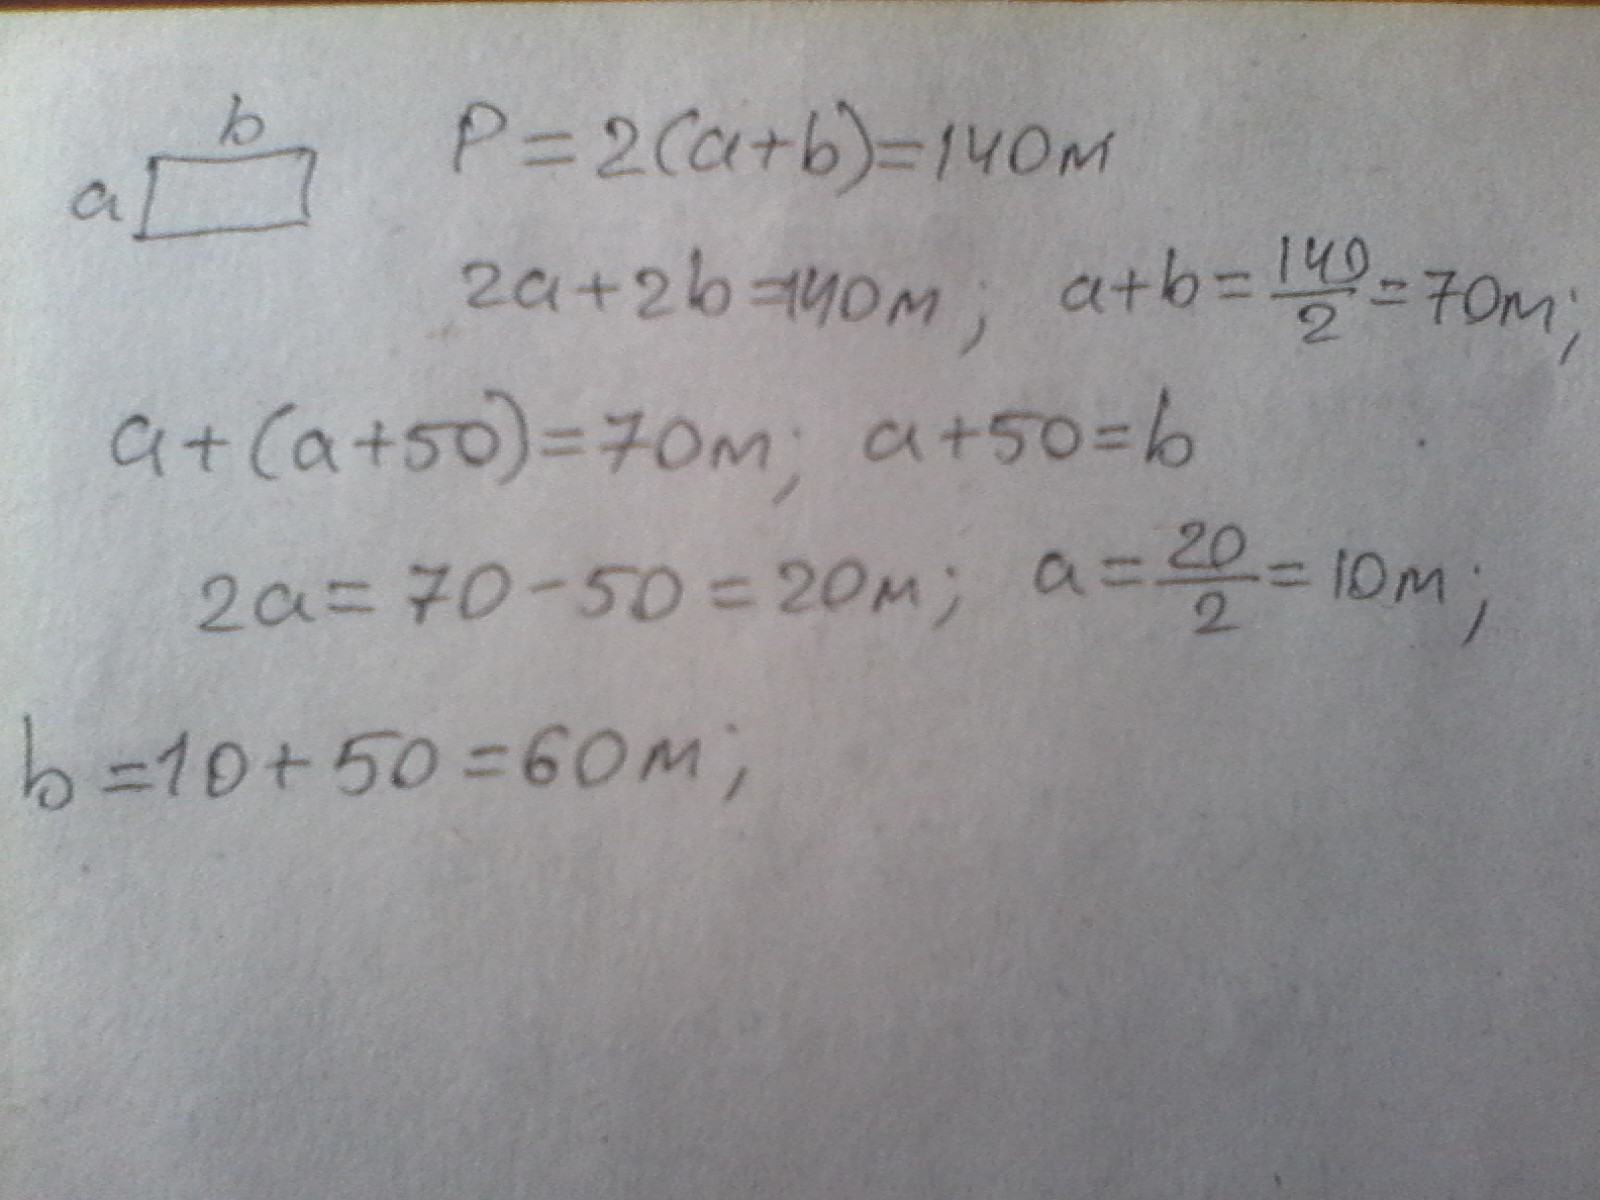 b
a
P=2(a+b)=140м
2a+2b=140м; a+b=140/2=70м;
a+(a+50)=70м; a+50=b
2a=70-50=20м; a=20/2=10м;
b=10+50=60м;